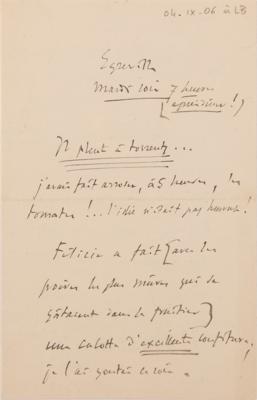 04.IX.06 à LB
Egreville
Mardi soir 7 heures
(après dîner !)
Il pleut à torrents...
j'avais fait arroser, à 5 heures, les
tomates !... l'idée n'était pas heureuse !
Félicie a fait (avec les
poires les plus mûres qui se
gâtaient dans le fruitier)
une culotte d'excellente confiture,
je l'ai goûtée ce soir.